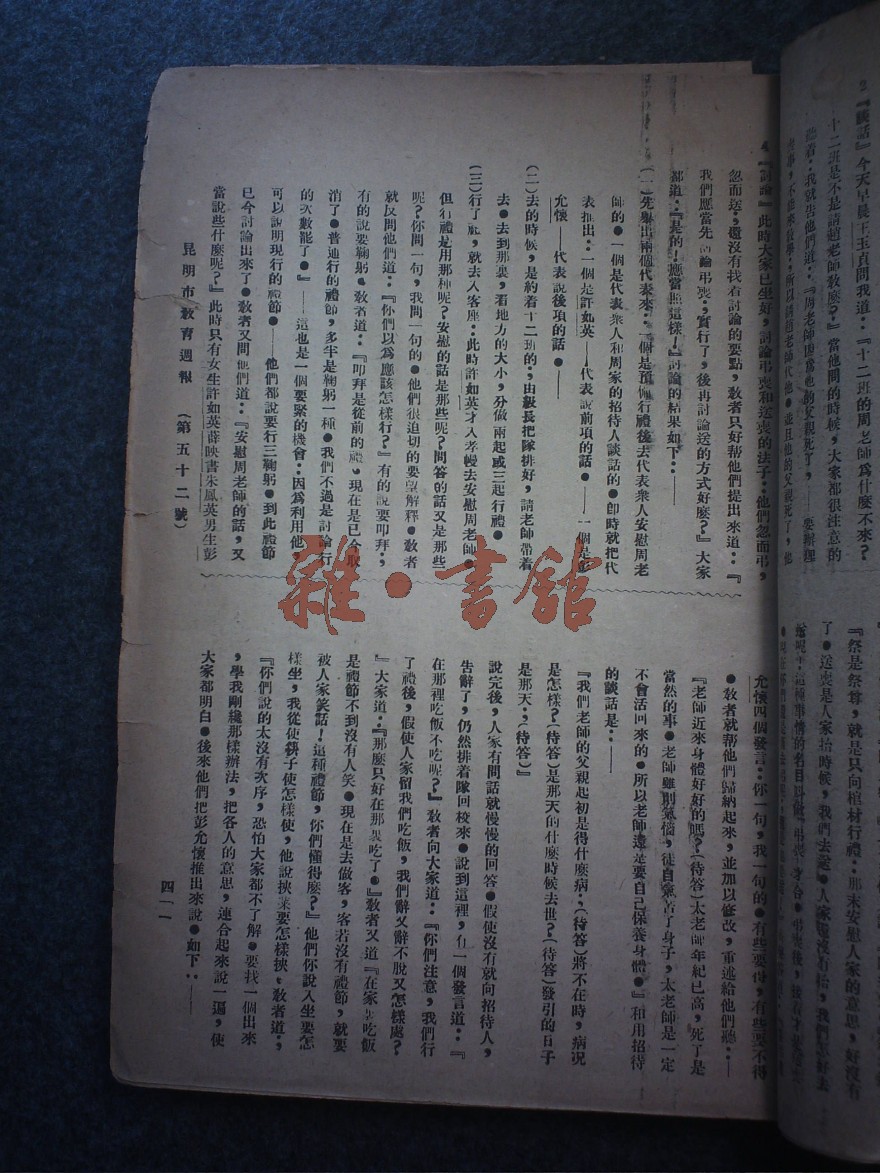 2.『談話』今天早晨王玉貞問我道：『十二班的周老師爲什麽不來？
十二班是不是請趙老師敎麽？』當他問的時候，大家都很注意的
聽着：我就告他們道：『周老師因爲他的父親死了，——要辦理
喪事，不能來敎學；所以請趙老師代他●並且他的父親死了，他
『祭是祭尊，就是只向棺材行禮：那末安慰人家的意思，好沒有
了●送喪是人家抬時候，我們去送●人家還沒有抬，我們怎好去
4.『討論』此時大家已坐好，討論弔喪和送喪的法子：他們忽而弔，
忽而送，還沒有找着討論的要點，敎者只好帮他們提出來道：『
我們應當先討論弔喪；實行了，後再討論送的方式好麽？』大家
都道：『是的！應當照這樣！』討論的結果如下：——
(一)先舉出兩個代表來：一個是預備行禮後去代表衆人安慰周老
師的●一個是代表衆人和周家的招待人談話的●卽時就把代
表推出：一個是許如英——代表說前項的話●——一個是彭
允懷——代表說後項的話●——
(二)去的時候，是約着十二班的；由級長把隊排好，請老師帶着
去●去到那裏，看地方的大小，分做兩起或三起行禮●
(三)行了禮，就去入客座：此時許如英才入孝幔去安慰周老師●
但行禮是用那种呢？安慰的話是那些呢？問答的話又是那些
呢？你問一句，我問一句的●他們很迫切的要望解釋●敎者
就反問他們道：『你們以爲應該怎樣行？』有的說要叩拜；
有的說要鞠躬●敎者道：『叩拜是從前的禮，現在是已今取
消了●普通行的禮節，多半是鞠躬一種●我們不過是討論行
的次數罷了●』——這也是一個要緊的機會：因爲利用他，
可以說明現行的禮節●——他們都說要行三鞠躬●到此禮節
已今討論出來了●敎者又問他們道：『安慰周老師的話，又
當說些什麽呢？』此時只有女生許如英薛映書朱鳳英男生彭
允懷四個發言：你一句，我一句的●有些要得，有些要不得
●敎者就帮他們歸納起來，並加以修改，重述給他們聽：——
『老師近來身體好好的嗎？(待答)太老師年紀已高，死了是
當然的事●老師雖則氣惱，徒自氣苦了身子，太老師是一定
不會活回來的●所以老師還是要自己保養身體●』和用招待
的談話是：——
『我們老師的父親起初是得什麽病；(待答)將不在時，病况
是怎樣？(待答)是那天的什麽時候去世？(待答)發引的日子
是那天；(待答)』
說完後，人家有問話就慢慢的回答●假使沒有就向招待人，
告辭了，仍然排着隊回校來●說到這裡，有一個發言道：『
在那裡吃飯不吃呢？』敎者向大家道：『你們注意，我們行
了禮後，假使人家留我們吃飯，我們辭又辭不脫又怎樣處？
』大家道：『那麽只好在那裏吃了●』敎者又道『在家裏吃飯
是禮節不到沒有人笑●現在是去做客，客若沒有禮節，就要
被人家笑話！這種禮節，你們懂得麽？』他們你說入坐要怎
樣坐，我從使筷子使怎樣使，他說挾菜要怎樣挾●敎者道；
『你們說的太沒有次序，恐怕大家都不了解●要找一個出來
，學我剛纔那樣辦法，把各人的意思，連合起來說一遍，使
大家都明白●後來他們把彭允懷推出來說●如下：——
昆明市敎育週報　(第五十二號)
四一一
雜·書館